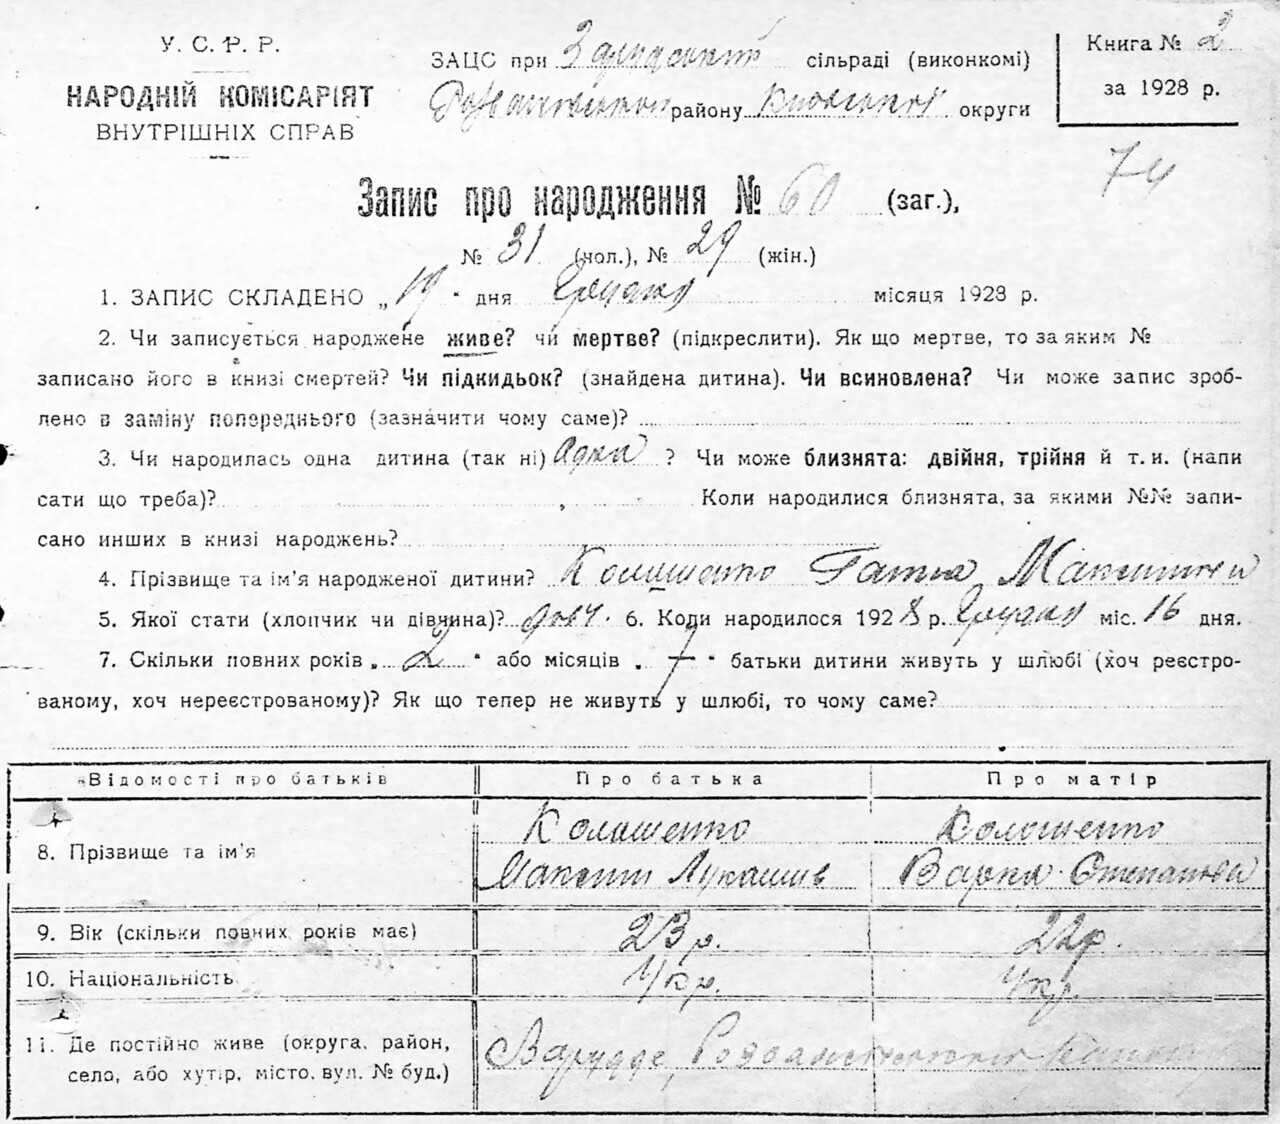 У. С. Р. Р.
НАРОДНІЙ КОМІСАРІЯТ
ВНУТРІШНІХ СПРАВ
ЗАЦС при сільраді (виконкомі)
району Київської округи
Книга № 2
за 1928 р.
74
Запис про народження № 60 (заг.),
№ 31 (чол.), № 29 (жін.)
1. ЗАПИС СКЛАДЕНО „19" дня Грудня місяця 1928 р.
2. Чи записується народжене живе? чи мертве? (підкреслити). Як що мертве, то за яким №
записано його в книзі смертей? Чи підкидьок? (знайдена дитина). Чи всиновлена? Чи може запис зроб-
лено в заміну попереднього (зазначити чому саме)?
3. Чи народилась одна дитина (так ні) ? Чи може близнята: двійня, трійня й т. и. (напи
сати що треба)? Коли народилися близнята, за якими №№ запи-
сано инших в книзі народжень?
4. Прізвище та ім'я народженої дитини? Колашенко Ганна Максимівна
5. Якої стати (хлопчик чи дівчина)? дівч. 6. Коли народилося 1928 р. Грудня міс. 16 дня.
7. Скільки повних років „ 2 " або місяців „ 7 " батьки дитини живуть у шлюбі (хоч реєстро-
ваному, хоч нереєстрованому)? Як що тепер не живуть у шлюбі, то чому саме?
Відомості про батьків Про батька Про матір
8. Прізвище та ім'я Колашенко Максим Лукашів Колошенко Варка Степанівна
9. Вік (скільки повних років має) 23 р. 22 р.
10. Національність Укр. Укр.
11. Де постійно живе (округа, район,
село, або хутір, місто, вул. № буд.)